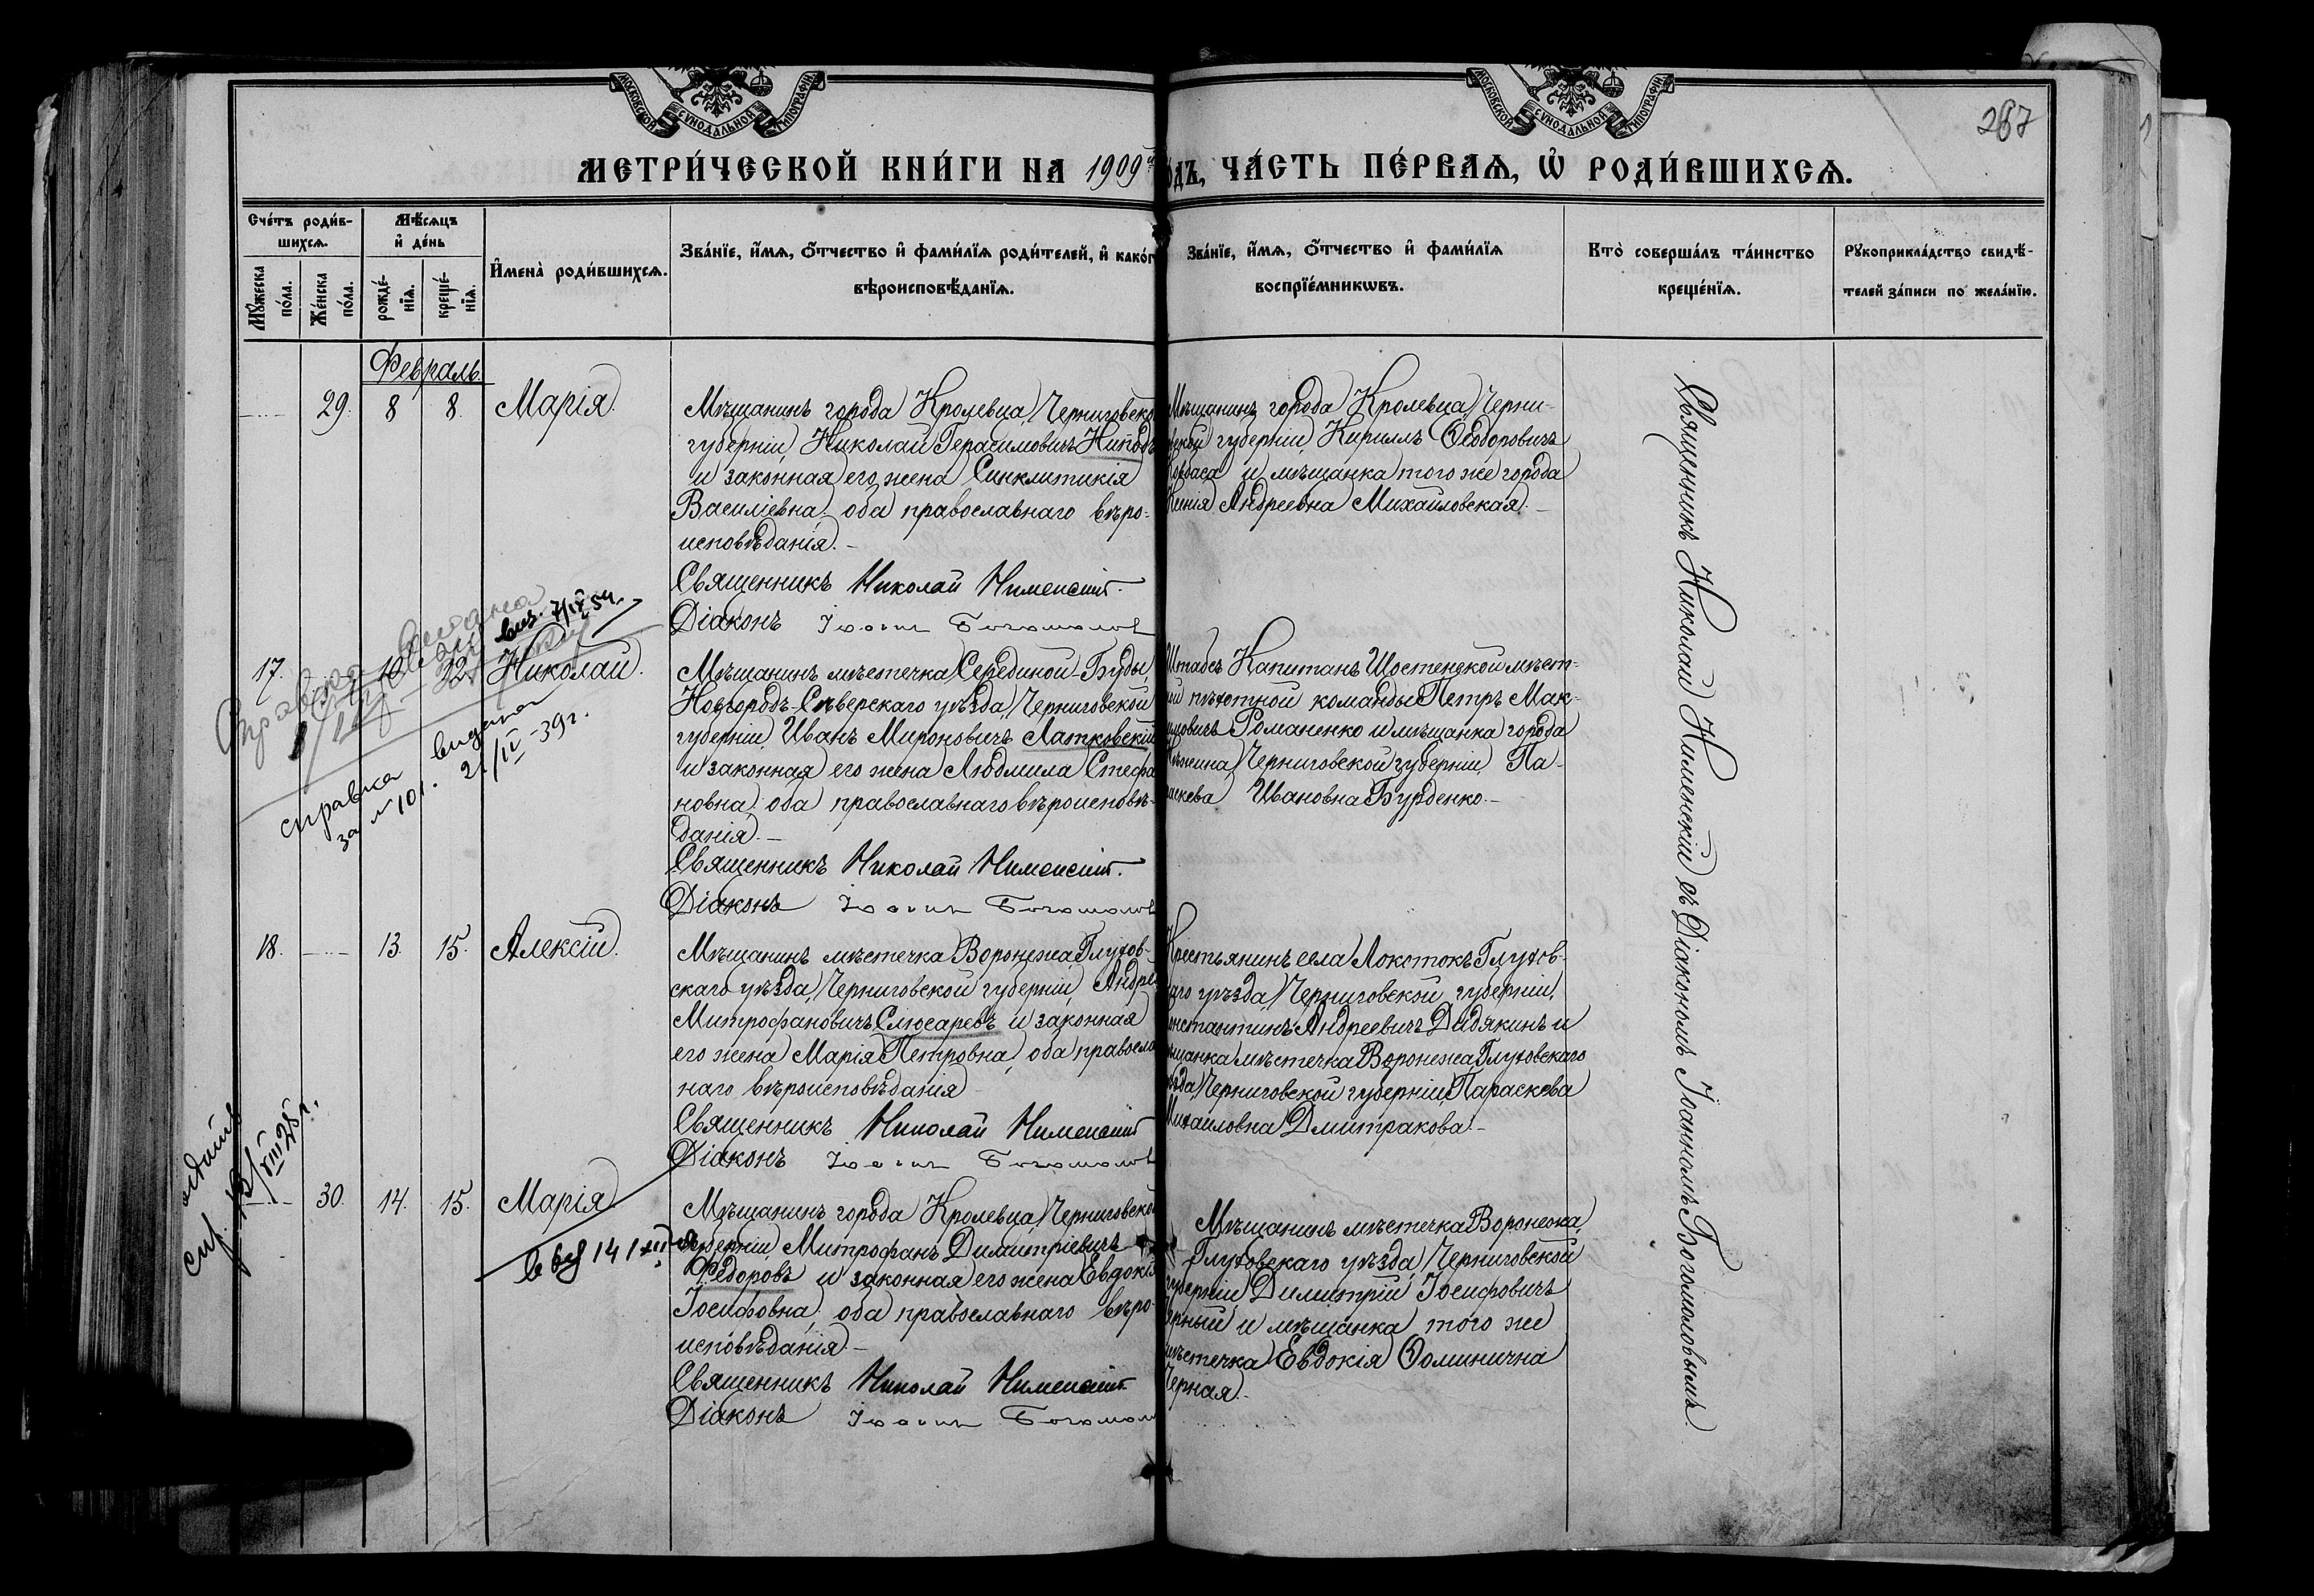 МОСКОВСКОЙ СѴНОДАЛЬНОЙ ТИПОГРАФІИ
МОСКОВСКОЙ СѴНОДАЛЬНОЙ ТИПОГРАФІИ
267
МЕТРИ́ЧЕСКОЙ КНИ́ГИ НА 1909й
ОДЪ, ЧА́СТЬ ПЕ́РВАѦ, Ѡ҆ РОДИ́ВШИХСѦ.
Сче́тъ роди́в-
шихсѧ.
Мѣ́сѧцъ
и҆ де́нь
Мꙋ́жеска по́ла.
Же́нска по́ла.
рожде́-нїѧ.
креще́-нїѧ.
И҆мена̀ роди́вшихсѧ.
Зва́нїе, и҆́мѧ, ѻ҆́тчество и҆ фами́лїѧ роди́телей, и҆ како́г
вѣроисповѣ́данїѧ.
Зва́нїе, и҆́мѧ, ѻ҆́тчество и҆ фами́лїѧ
воспрїе́мникѡвъ.
Кто̀ соверша́лъ та́инство
креще́нїѧ.
Рꙋкоприкла́дство свидѣ́-
телей за́писи по жела́нїю.
Февраль.
29. 8 8. Марія.
Мѣщанинъ города Кролевца, Черниговско
губерніи, Николай Герасимовичъ Нипод
и законная его жена Синклитикія
Василіевна, оба православнаго вѣро-
исповѣданія.—
Священникъ Николай Нименскій.
Діаконъ Іоаннъ Богомолов
Мѣщанинъ города Кролевца, Черни-
вской губерніи, Кириллъ Ѳеодоровичъ
и мѣщанка того же города
Андреевна Михайловская.—
Священникъ Николай Нименскій съ Діакономъ Іоанномъ Богомоловымъ.
Справка выдана
справка выдана
за № 101. 21/IV-39г.
17. 10 22 Николай.
Мѣщанинъ мѣстечка Серединой-Буды,
Новгородъ-Сѣверскаго уѣзда, Черниговской
губерніи, Иванъ Мироновичъ Латковскій
и законная его жена Людмила Стефа
новна, оба православнаго вѣроисповѣ-
данія.—
Священникъ Николай Нименскій.
Діаконъ Іоаннъ Богомолов
Штабсъ Капитанъ Шостенской мѣст-
ой пѣхотной команды Петръ Мак-
имовичъ Романенко и мѣщанка города
Нѣжина, Черниговской губерніи, Па-
аскева Ивановна Бурденко.—
18. 13. 15. Алексій.
Мѣщанинъ мѣстечка Воронежа, Глухов-
скаго уѣзда, Черниговской губерніи, Андре
Митрофановичъ Слюсаревъ и законная
его жена Марія Петровна, оба правосла
наго вѣроисповѣданія
Священникъ Николай Нименскій
Діаконъ Іоаннъ Богомолов
Крестьянинъ села Локотокъ Глухов-
аго уѣзда, Черниговской губерніи,
онстантинъ Андреевичъ Дидякинъ и
ѣщанка мѣстечка Воронежа, Глуховскаго
ѣзда, Черниговской губерніи, Параскева
Михайловна Дмитракова.—
30. 14. 15. Марія
Мѣщанинъ города Кролевца, Черниговско
губерніи, Митрофанъ Димитріевичъ
Ѳедоровъ и законная его жена Евдокія
Іосифовна, оба православнаго вѣро-
исповѣданія.—
Священникъ Николай Нименскій
Діаконъ Іоаннъ Богомол
Мѣщанинъ мѣстечка Воронежа,
Глуховскаго уѣзда, Черниговской
губерніи, Димитрій Іосифовичъ
ерный и мѣщанка того же
мѣстечка Евдокія Ѳоминична
Черная.